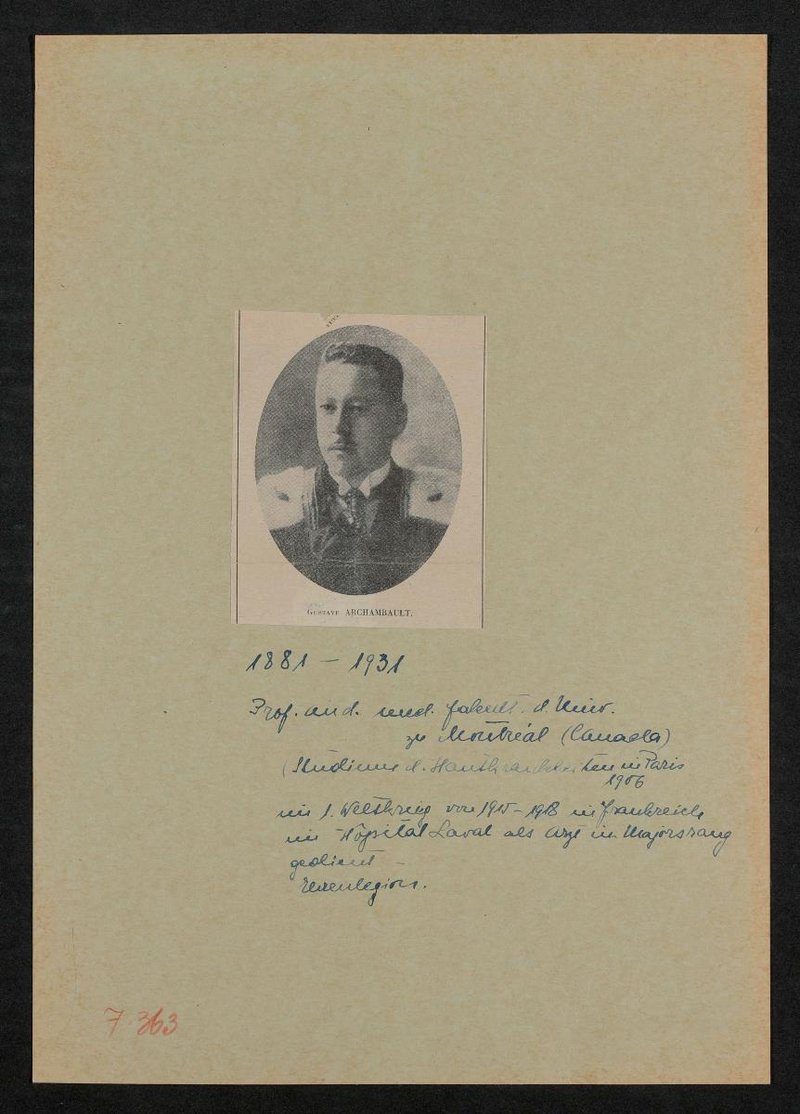 Gustave ARCHAMBAULT.
1881 – 1931
Prof. an d. med. Fakult. d Univ.
zu Montréal (Canada)
(Studium d. Hautkrankheiten in Paris
1906
im 1. Weltkrieg von 1915 – 1918 in Frankreich
im Hôpital Laval als Arzt im Majorsrang
gedient –
Ehrenlegion.
7 363